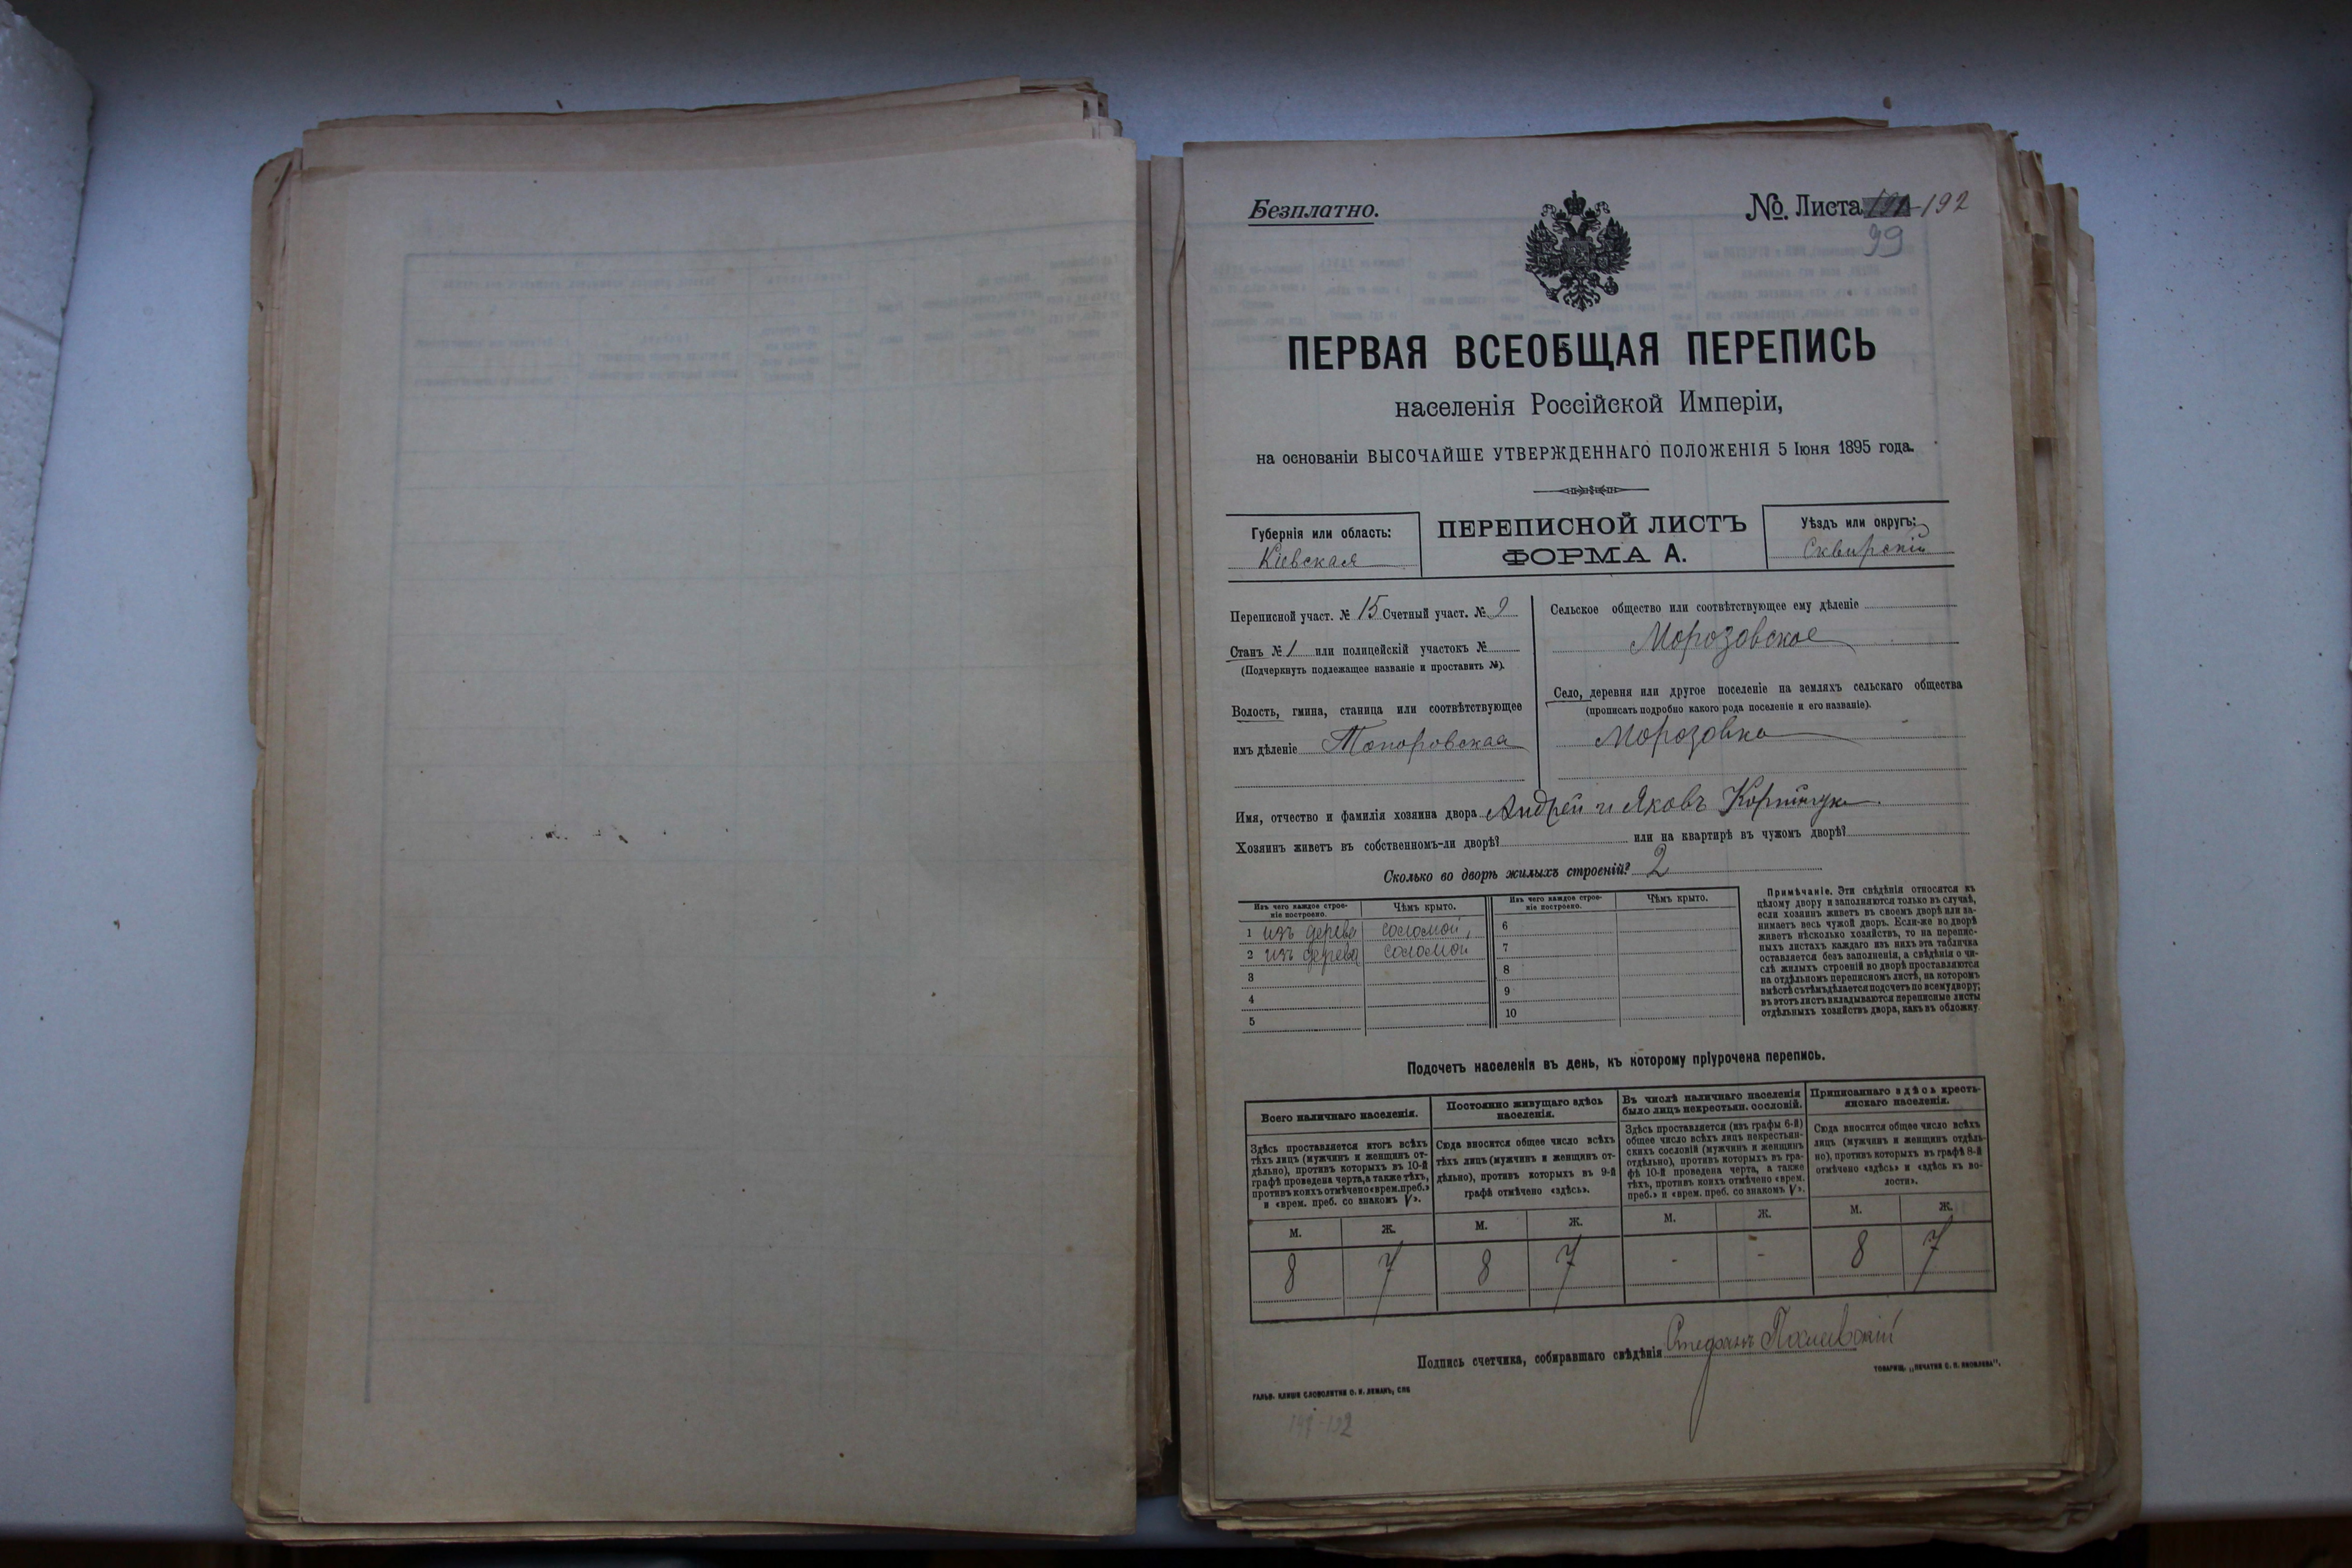 Безплатно.
№. Листа 192
99
ПЕРВАЯ ВСЕОБЩАЯ ПЕРЕПИСЬ
населенія Россійской Имперіи,
на основаніи ВЫСОЧАЙШЕ УТВЕРЖДЕННАГО ПОЛОЖЕНІЯ 5 Іюня 1895 года.
Губернія или область:
Кіевская
ПЕРЕПИСНОЙ ЛИСТЪ
ФОРМА А.
Уѣздъ или округъ:
Сквирскій
Переписной участ. № 15 Счетный участ. № 2
Станъ № 1 или полицейскій участокъ №
(Подчеркнуть подлежащее названіе и проставить №).
Волость, гмина, станица или соотвѣтствующее
имъ дѣленіе Топоровская
Сельское общество или соотвѣтствующее ему дѣленіе
Морозовское
Село, деревня или другое поселеніе на земляхъ сельскаго общества
(прописать подробно какого рода поселеніе и его названіе).
Морозовка
Имя, отчество и фамилія хозяина двора Андрей и Яковъ
Хозяинъ живетъ въ собственномъ-ли дворѣ? или на квартирѣ въ чужомъ дворѣ?
Сколько во дворѣ жилыхъ строеній? 2
Изъ чего каждое строе-
ніе построено.
Чѣмъ крыто.
1 изъ дерева соломой,
2 изъ дерева соломой
3
4
5
Изъ чего каждое строе-
ніе построено.
Чѣмъ крыто.
6
7
8
9
10
Примѣчаніе. Эти свѣдѣнія относятся къ
цѣлому двору и заполняются только въ случаѣ,
если хозяинъ живетъ въ своемъ дворѣ или за-
нимаетъ весь чужой дворъ. Если-же во дворѣ
живетъ нѣсколько хозяйствъ, то на перепис-
ныхъ листахъ каждаго изъ нихъ эта табличка
оставляется безъ заполненія, а свѣдѣнія о чи-
слѣ жилыхъ строеній во дворѣ проставляются
на отдѣльномъ переписномъ листѣ, на которомъ
вмѣстѣ съ тѣмъ дѣлается подсчетъ по всему двору;
въ этотъ листъ вкладываются переписные листы
отдѣльныхъ хозяйствъ двора, какъ въ обложку.
Подсчетъ населенія въ день, къ которому пріурочена перепись.
Всего наличнаго населенія.
Здѣсь проставляется итогъ всѣхъ
тѣхъ лицъ (мужчинъ и женщинъ от-
дѣльно), противъ которыхъ въ 10-й
графѣ проведена черта, а также тѣхъ,
противъ коихъ отмѣчено «врем. преб.»
и «врем. преб. со знакомъ V».
Постоянно живущаго здѣсь
населенія.
Сюда вносится общее число всѣхъ
тѣхъ лицъ (мужчинъ и женщинъ от-
дѣльно), противъ которыхъ въ 9-й
графѣ отмѣчено «здѣсь».
Въ числѣ наличнаго населенія
было лицъ некрестьян. сословій.
Здѣсь проставляется (изъ графы 6-й)
общее число всѣхъ лицъ некрестьян-
скихъ сословій (мужчинъ и женщинъ
отдѣльно), противъ которыхъ въ гра-
фѣ 10-й проведена черта, а также
тѣхъ, противъ коихъ отмѣчено «врем.
преб.» и «врем. преб. со знакомъ V».
Приписаннаго здѣсь кресть-
янскаго населенія.
Сюда вносится общее число всѣхъ
лицъ (мужчинъ и женщинъ отдѣль-
но), противъ которыхъ въ графѣ 8-й
отмѣчено «здѣсь» и «здѣсь къ во-
лости».
М. Ж. М. Ж. М. Ж. М. Ж.
8 7 8 7 - - 8 7
Подпись счетчика, собиравшаго свѣдѣнія Стефанъ
ГАЛЬВ. КЛИШЕ СЛОВОЛИТНИ О. И. ЛЕМАНЪ, СПБ.
ТОВАРИЩ. „ПЕЧАТНЯ С. П. ЯКОВЛЕВА".